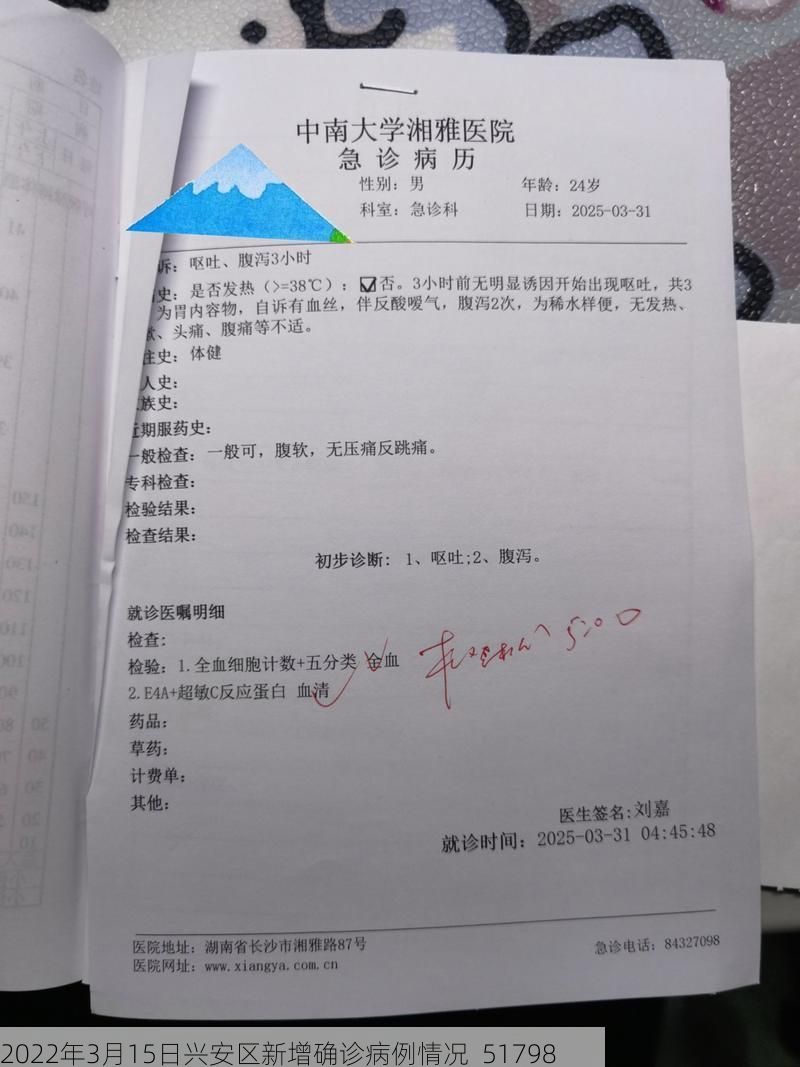 中南大学湘雅医院
急诊病历
性别：男 年龄：24岁
科室：急诊科 日期：2025-03-31
诉：呕吐、腹泻3小时
史：是否发热（>=38℃）：☑否。3小时前无明显诱因开始出现呕吐，共3
为胃内容物，自诉有血丝，伴反酸嗳气，腹泻2次，为稀水样便，无发热、
、头痛、腹痛等不适。
往史：体健
人史：
族史：
近期服药史：
一般检查：一般可，腹软，无压痛反跳痛。
专科检查：
检验结果：
检查结果：
初步诊断：1、呕吐;2、腹泻。
就诊医嘱明细
检查：
检验：1.全血细胞计数+五分类 全血
2.E4A+超敏C反应蛋白 血清
药品：
草药：
计费单：
其他：
医生签名:刘嘉
就诊时间：2025-03-31 04:45:48
医院地址：湖南省长沙市湘雅路87号 急诊电话：84327098
医院网址：www.xiangya.com.cn
2022年3月15日兴安区新增确诊病例情况 51798